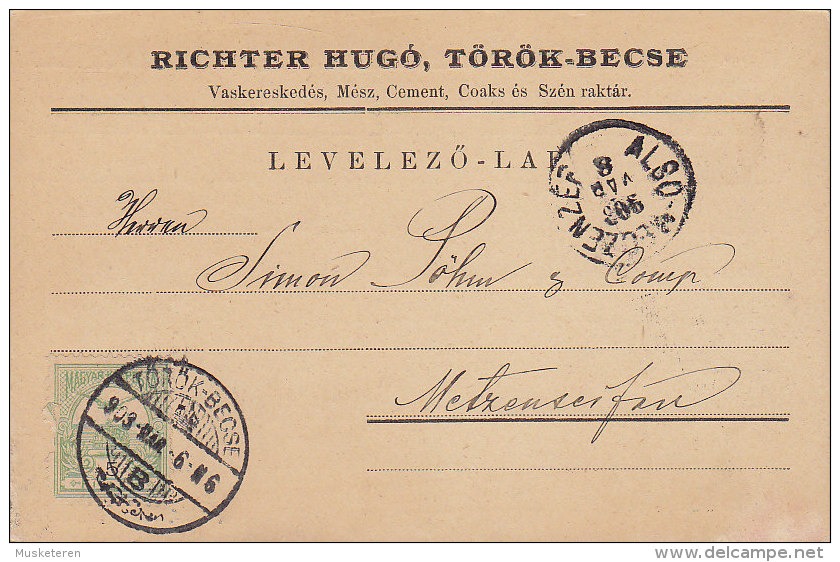 RICHTER HUGÓ, TÖRÖK-BECSE
Vaskereskedés, Mész, Cement, Coaks és Szén raktár.
LEVELEZŐ-LAP
ALSÓ-MECZENZÉF
903
MAR
8
Herren
Simon Böhm & Comp
Metzenseifen
MAGYAR
TÖRÖK-BECSE
903 MAR. -6. N6
B
Musketeren
delcampe.net